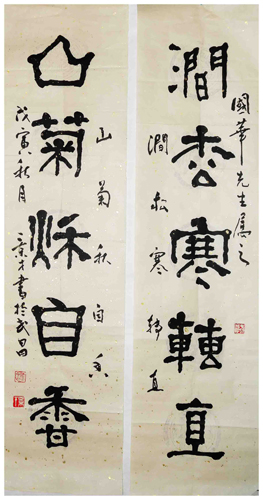 國華先生屬之
澗松寒轉直
澗松寒轉直
山菊秋自香
山菊秋自香
戊寅秋月
景才書於武昌